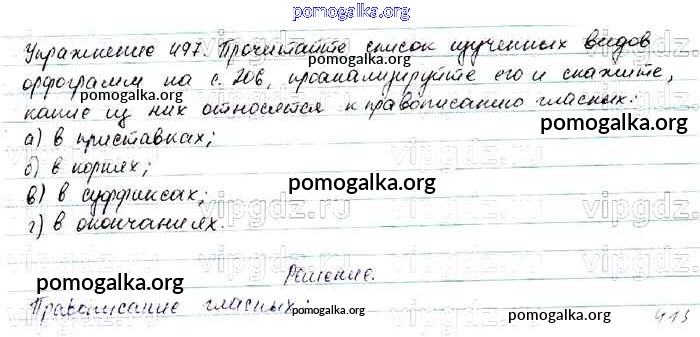 pomogalka.org
Упражнение 497. Прочитайте список изученных видов
орфограмм на с. 206, проанализируйте его и скажите,
какие из них относятся к правописанию гласных:
pomogalka.org
pomogalka.org
pomogalka.org
а) в приставках;
б) в корнях;
pomogalka.org
в) в суффиксах;
vipgdz.ru
г) в окончаниях.
pomogalka.org
Решение.
pomogalka.org
Правописание гласных:
pomogalka.org
pomogalka.org
413